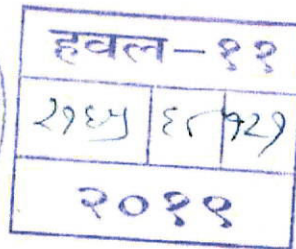 हवल-११
२१६५ ६८ १२१
२०१९